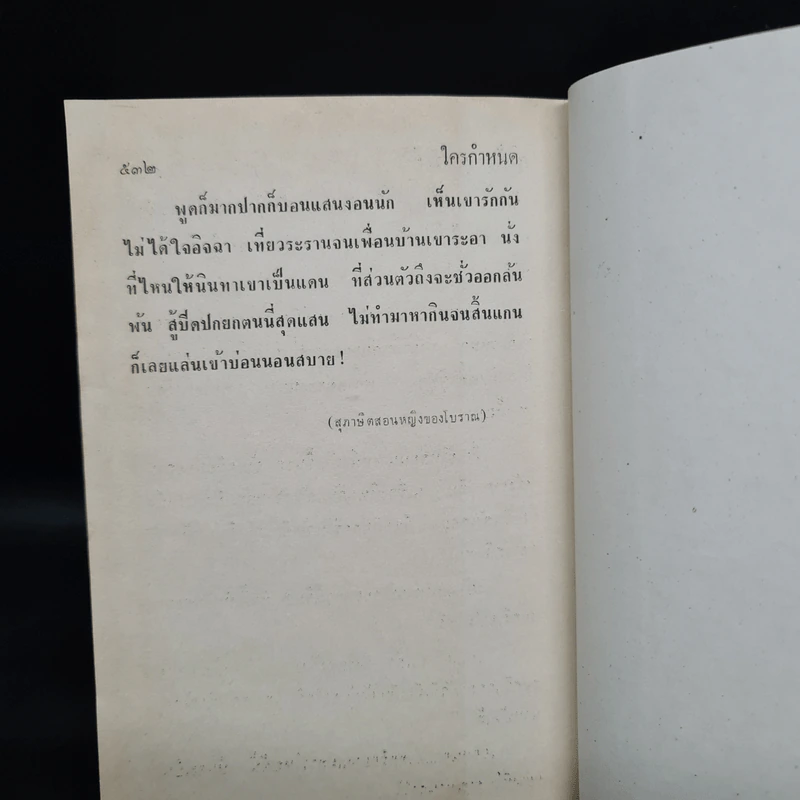 ๕๓๒ ใครกำหนด
พูดก็มากปากก็บอนแสนงอนนัก เห็นเขารักกัน
ไม่ได้ใจอิจฉา เที่ยวระรานจนเพื่อนบ้านเขาระอา นั่ง
ที่ไหนให้นินทาเขาเป็นแดน ที่ส่วนตัวถึงจะชั่วออกล้น
พ้น สู้ปี่ดปกยกตนนี่สุดแสน ไม่ทำมาหากินจนสิ้นแกน
ก็เลยแล่นเข้าบ่อนนอนสบาย!
(สุภาษิตสอนหญิงของโบราณ)